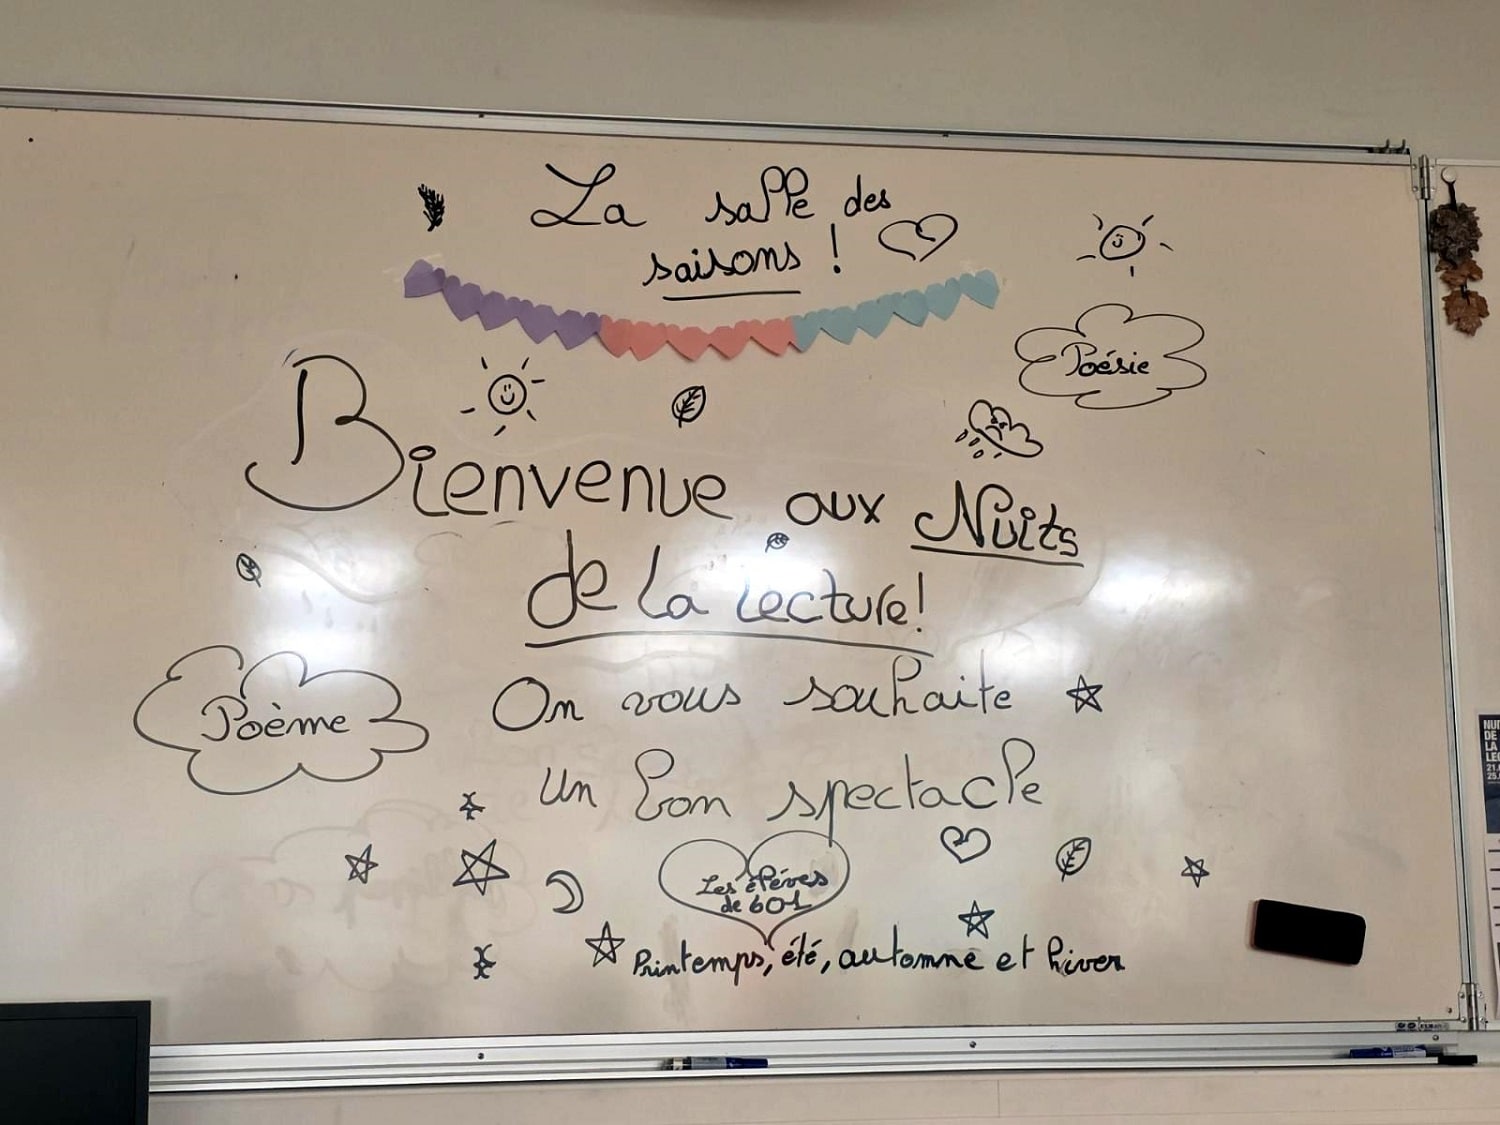 La salle des
saisons !
Poésie
Bienvenue aux Nuits
de la lecture!
Poème
On vous souhaite
un bon spectacle
Les élèves
de 601
Printemps, été, automne et hiver
NUI
DE
LA
LEC
21.
25.